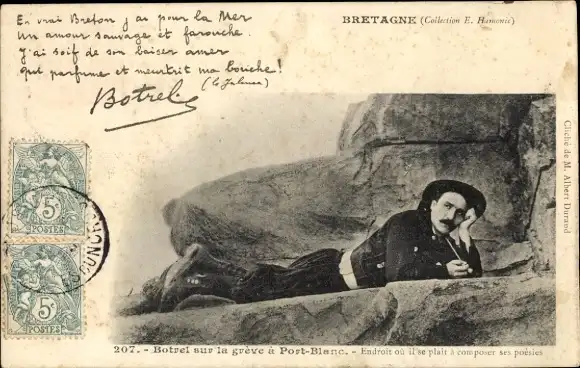 En vrai Breton j'ai pour la Mer
Un amour sauvage et farouche.
J'ai soif de son baiser amer
qui parfume et meurtrit ma bouche!
Botrel
BRETAGNE (Collection E. Hamonic)
Cliché de M. Albert Durand
5c
POSTES
5c
POSTES
207. - Botrel sur la grève à Port-Blanc. - Endroit où il se plait à composer ses poésies